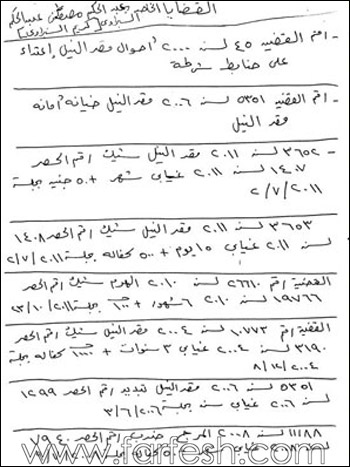 القضايا الخاصة بعبد الحكم مصطفى عبد الحكم
- رقم القضية ٤٥ لسنه ٢٠٠٠ احوال مقر النيل إعتداء
على ضابط شرطة
- رقم القضية ٥٣٥١ لسنه ٢٠٠٦ مقر النيل خيانه امانه
مقر النيل
- ٣٦٥٢ لسنه ٢٠١١ مقر النيل شيك رقم الحصر
١٤٠٧ لسنه ٢٠١١ غيابي شهر + ٥٠ جنيه جلسة
٢/٧/٢٠١١
٣٦٥٣ لسنه ٢٠١١ مقر النيل شيك رقم الحصر ١٤٠٨
لسنه ٢٠١١ غيابي ١٥ يوم + ٥٠٠ كفاله جلسة ٢/٧/٢٠١١
القضية رقم ٢٦٦١٠ لسنه ٢٠١٠ الهرم شيك رقم الحصر
١٩٧٦٦ لسنه ٢٠١٠ ٦ شهور + ١٠٠ جلسة
القضية رقم ١٠٧٧٣ لسنه ٢٠٠٤ مقر النيل شيك رقم الحصر
٣١٩٠ لسنه ٢٠٠٤ غيابي ٣ سنوات + ١٠٠٠ كفاله جلسة
٨/١٢/٢٠٠٤
٥٣٥١ لسنه ٢٠٠٦ مقر النيل تبديد رقم الحصر ١٢٩٩
لسنه ٢٠٠٦ غيابي سنه جلسة ٣/٦/٢٠٠٦
١١١٨٨ لسنه ٢٠٠٨ المرج ضرب رقم الحصر ٧٩٤٠
www.farfesh.com